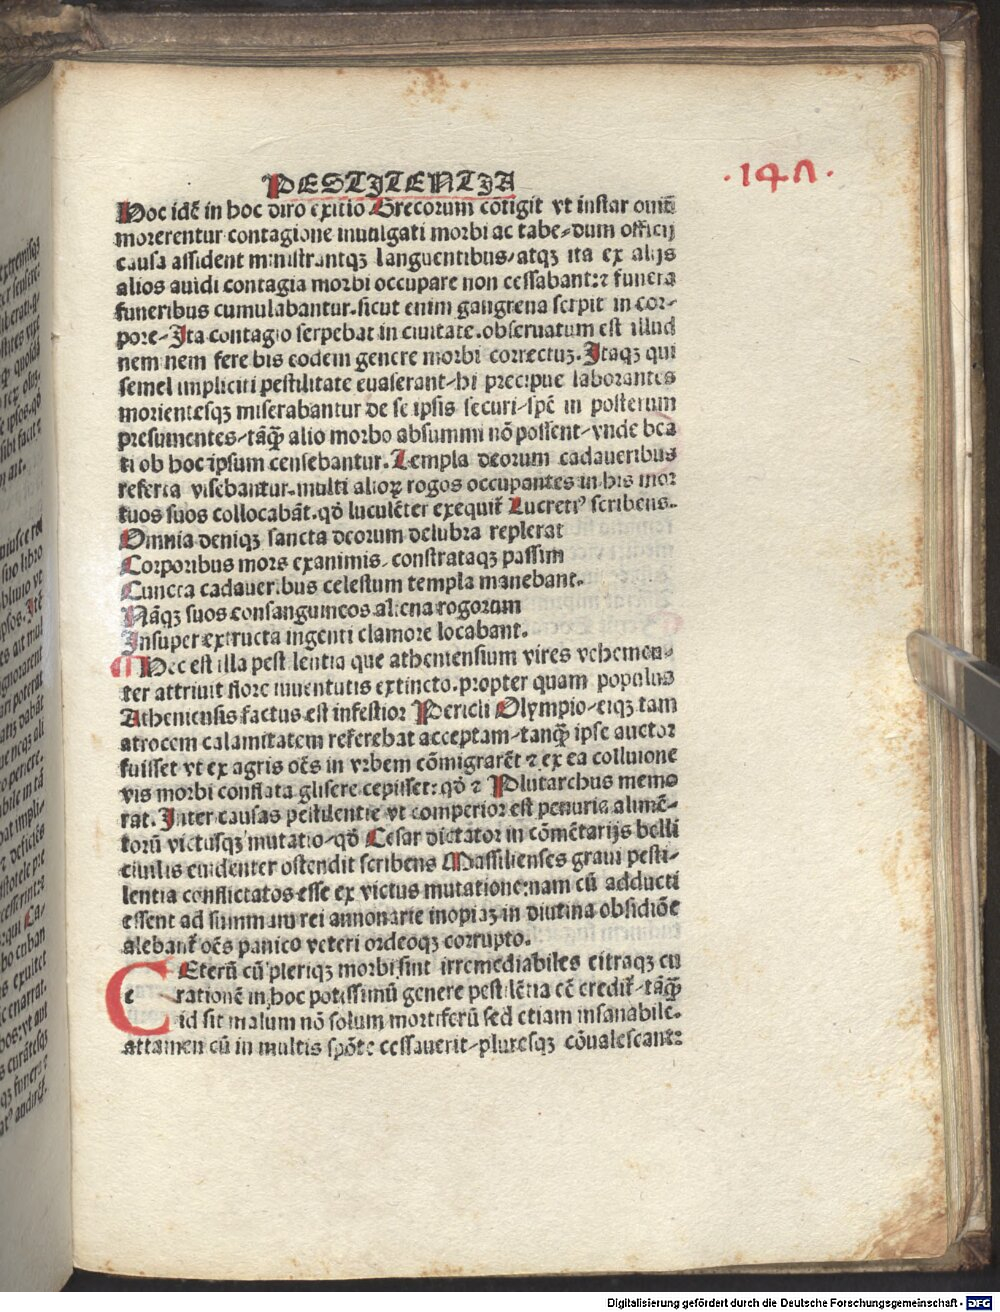 PESTITENTIA
.147.
Hoc idē in hoc diro exitio Grecorum cōtigit vt instar ouiū
morerentur contagione inuulgati morbi ac tabe-dum officij
causa assident ministrantqꝫ languentibus-atqꝫ ita ex alijs
alios auidi contagia morbi occupare non cessabant:⁊ funera
funeribus cumulabantur.sicut enim gangrena serpit in cor-
pore-Ita contagio serpebat in ciuitate.obseruatum est illud
nem nem fere bis eodem genere morbi correctuꝫ.Itaqꝫ qui
semel impliciti pestilitate euaserant-hi precipue laborantes
morientesqꝫ miserabantur de se ipsis securi-spē in posterum
presumentes-tāqꝫ̄ alio morbo absummi nō possent-vnde bea
ti ob hoc ipsum censebantur.Templa deorum cadaueribus
referta visebantur.multi alioꝝ rogos occupantes in his mor
tuos suos collocabāt.qđ luculēter exequit̄ Lucretiꝰ scribens.
Omnia deniqꝫ sancta deorum delubra replerat
Corporibus mors exanimis. constrataqꝫ passim
Cuncta cadauer.bus celestum templa manebant.
Nāqꝫ suos consanguineos aliena rogorum
Insuper extructa ingenti clamore locabant.
Hec est illa pest lentia que atheniensium vires vehemen-
ter attriuit flore iuuentutis extincto.propter quam populus
Atheniensis factus est infestior Pericli Olympio-eiqꝫ tam
atrocem calamitatem referebat acceptam-tanqꝫ̄ ipse auctor
fuisset vt ex agris oēs in vrbem cōmigrarēt ⁊ ex ea colluuione
vis morbi conflata gliscre cepisset:qđ ⁊ Plutarchus memo
rat.Inter causas pestilentie vt comperior est penuria alimē-
torū victusqꝫ mutatio-qđ Cesar dictator in cōmētarijs belli
ciuilis euidenter ostendit scribens Massilienses graui pesti-
lentia conflictatos esse ex victus mutatione:nam cū adducti
essent ad summam rei annonarie inopiaꝫ in diutina obsidiōe
alebant̄ oēs panico veteri ordeoqꝫ corrupto.
CEterū cū pleriqꝫ morbi sint irremediabiles citraqꝫ cu
e rationē in hoc potissimū genere pestilētia cē credit̄-tāqꝫ̄
id sit malum nō solum mortiferū sed etiam insanabile.
attamen cū in multis spōte cessauerit-pluresqꝫ cōualescant:
Digitalisierung gefördert durch die Deutsche Forschungsgemeinschaft - DFG